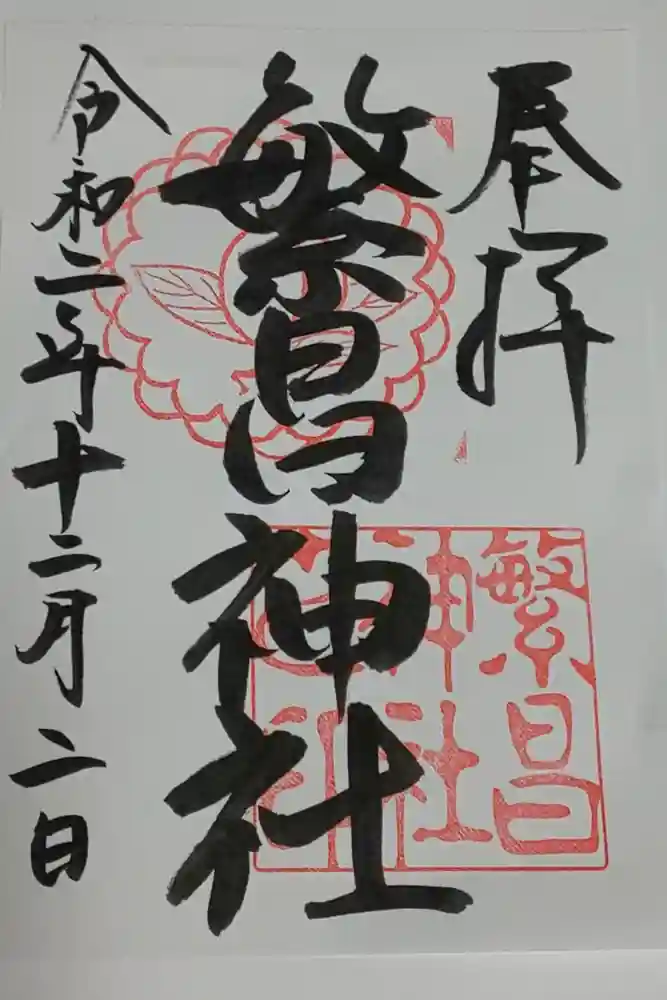 奉拝
繁昌神社
令和二年十二月二日
繁昌
神社
之印